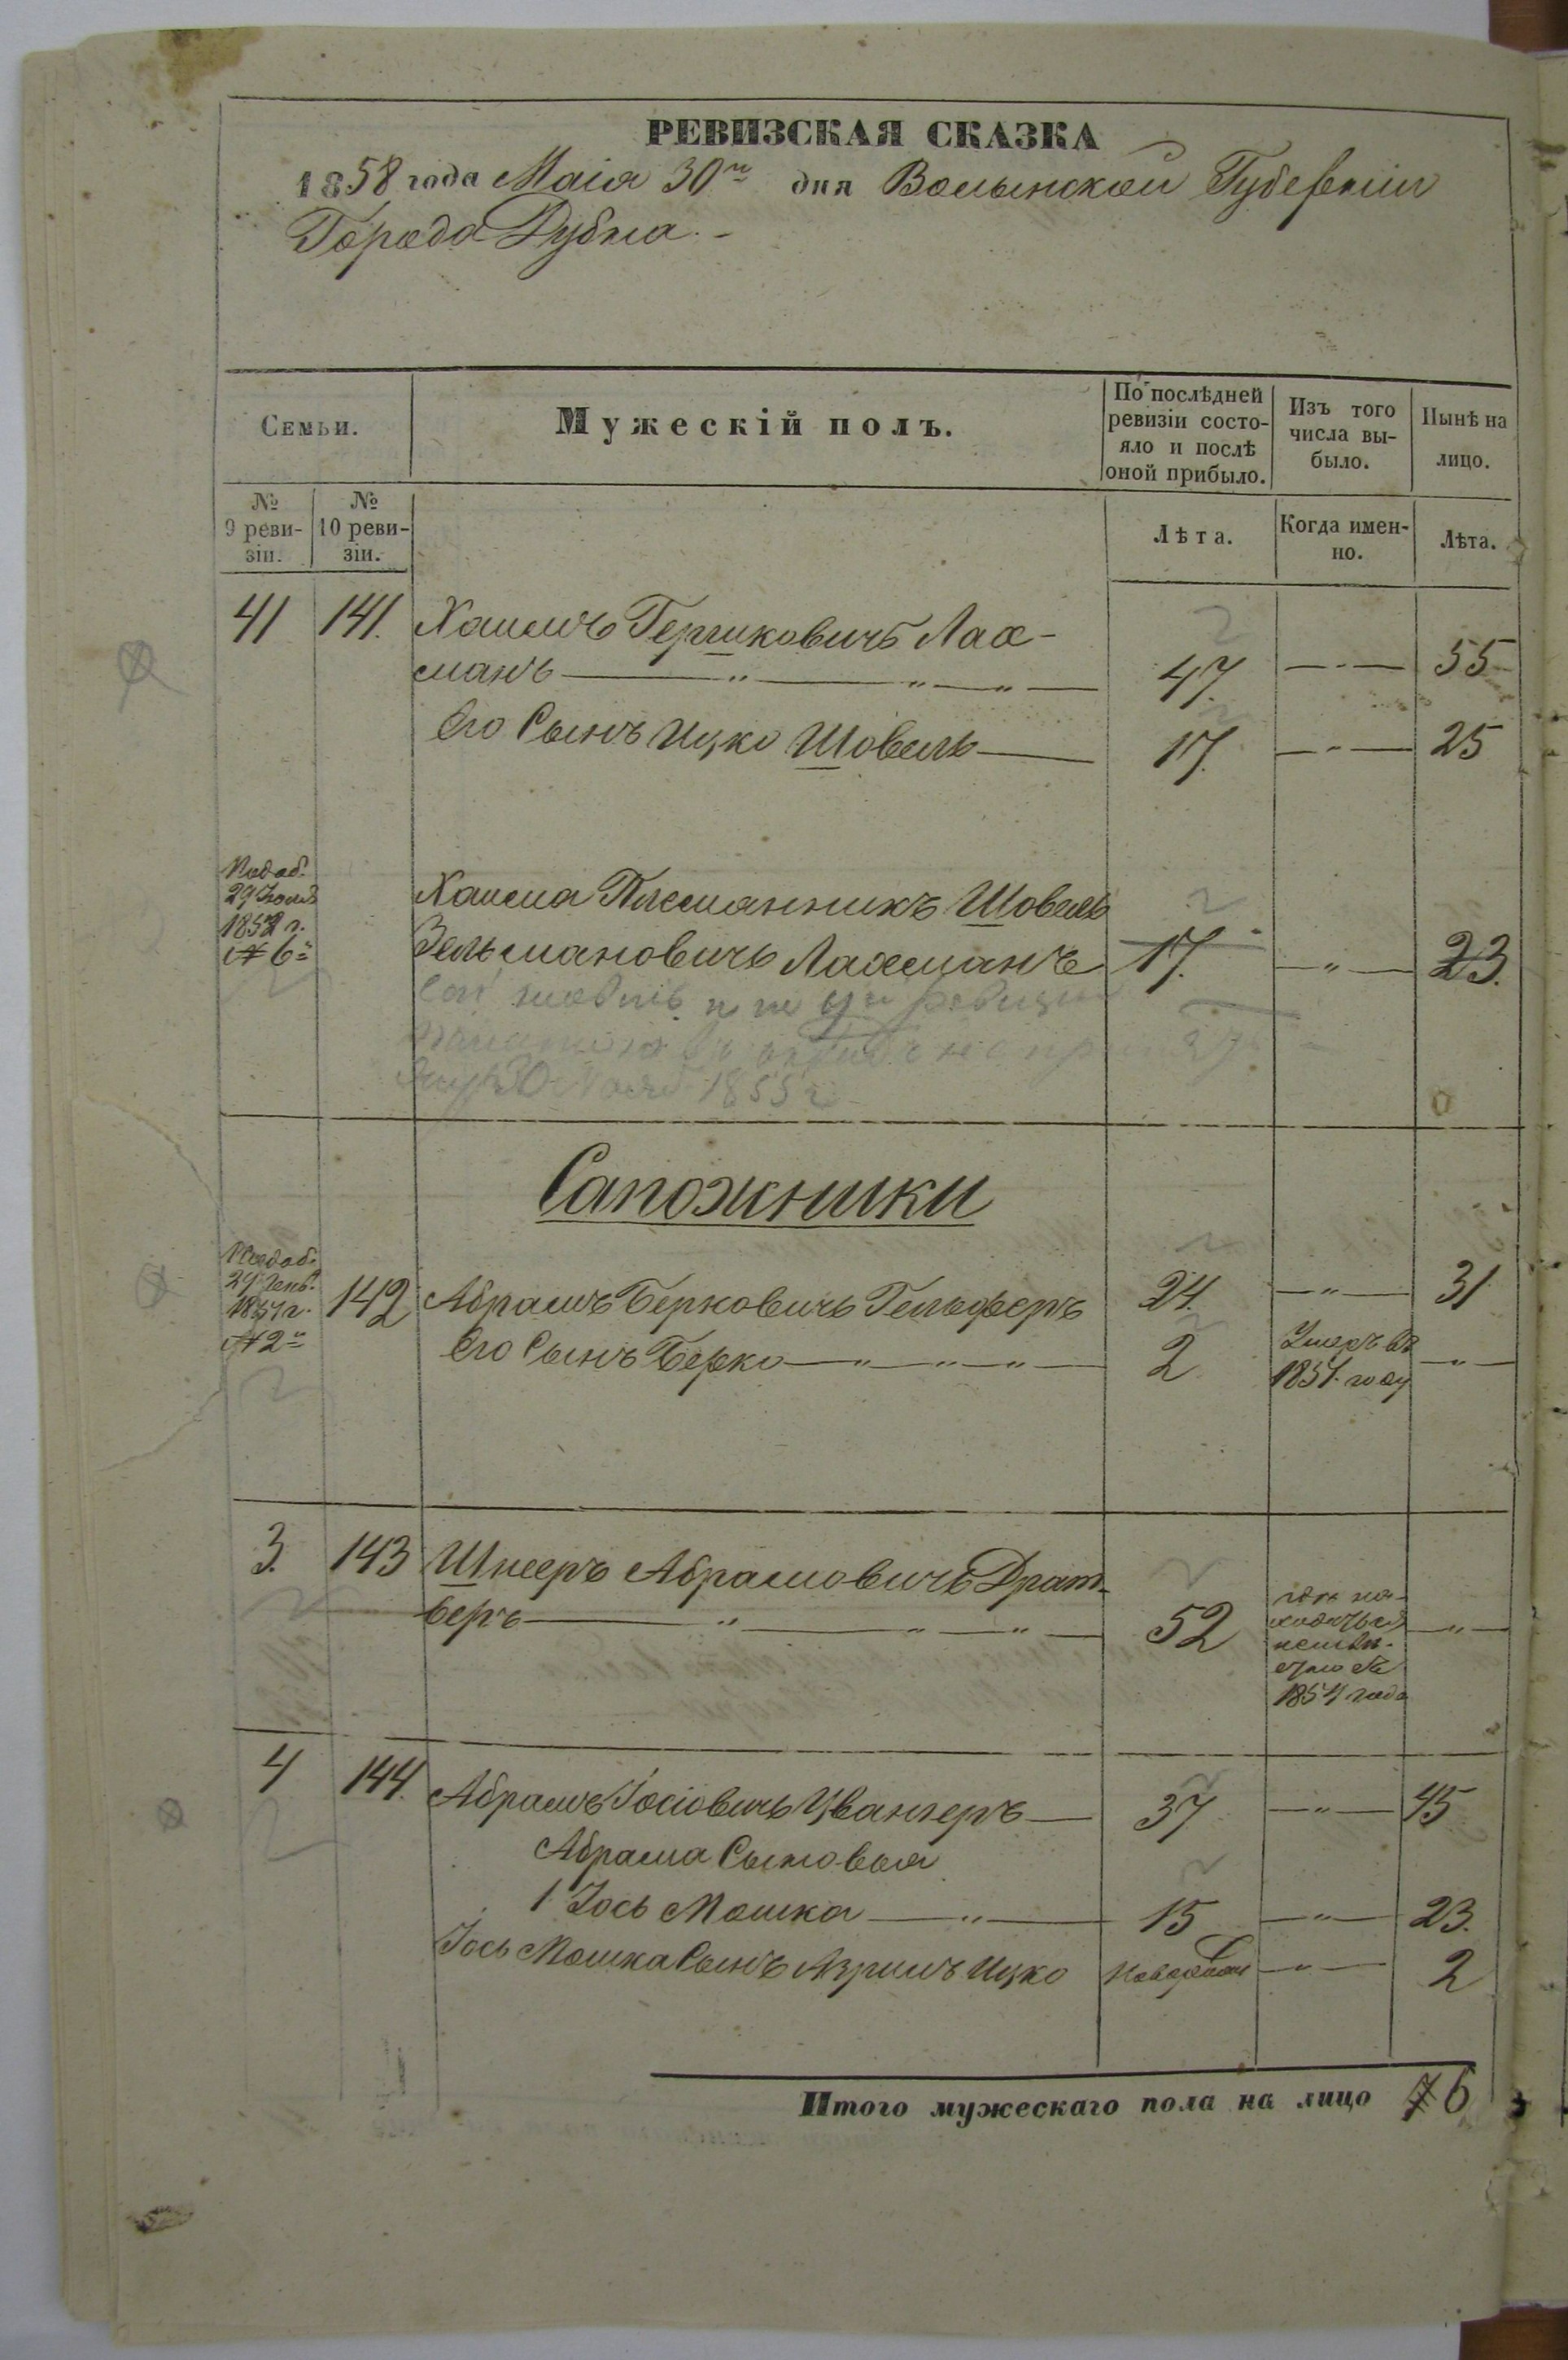 РЕВИЗСКАЯ СКАЗКА
1858 года Маія 30го дня Волынской Губерніи
Города Дубна
Семьи.
Мужескій полъ.
По послѣдней
ревизіи состо-
яло и послѣ
оной прибыло.
Изъ того
числа вы-
было.
Нынѣ на
лицо.
№
9 реви-
зіи.
№
10 реви-
зіи.
Лѣта.
Когда имен-
но.
Лѣта.
41 141. Хаимъ Гершковичъ Лах-
манъ 47. 55
Его Сынъ Ицко Шовель 17. 25
29
185
№ 6
Хаима Племянникъ Шовель
Зельмановичъ Лахманъ 17. 23.
1855 г
Сапожники
№ 2
142 Абрамъ Берковичъ Гельферъ 24. 31
Его Сынъ Берко 2 Умеръ въ
1857. году
3. 143 Шнееръ Абрамовичъ Драт-
беръ 52
гдѣ на-
ходиться
неизвѣ-
стно съ
1854 года
4 144. Абрамъ Іосіовичъ Цвангеръ 37 45
Абрама Сыновья
1 Іось Мошка 15 23.
Іось Мошка Сынъ Азриль Ицко новорожден 2
Итого мужескаго пола на лицо 6